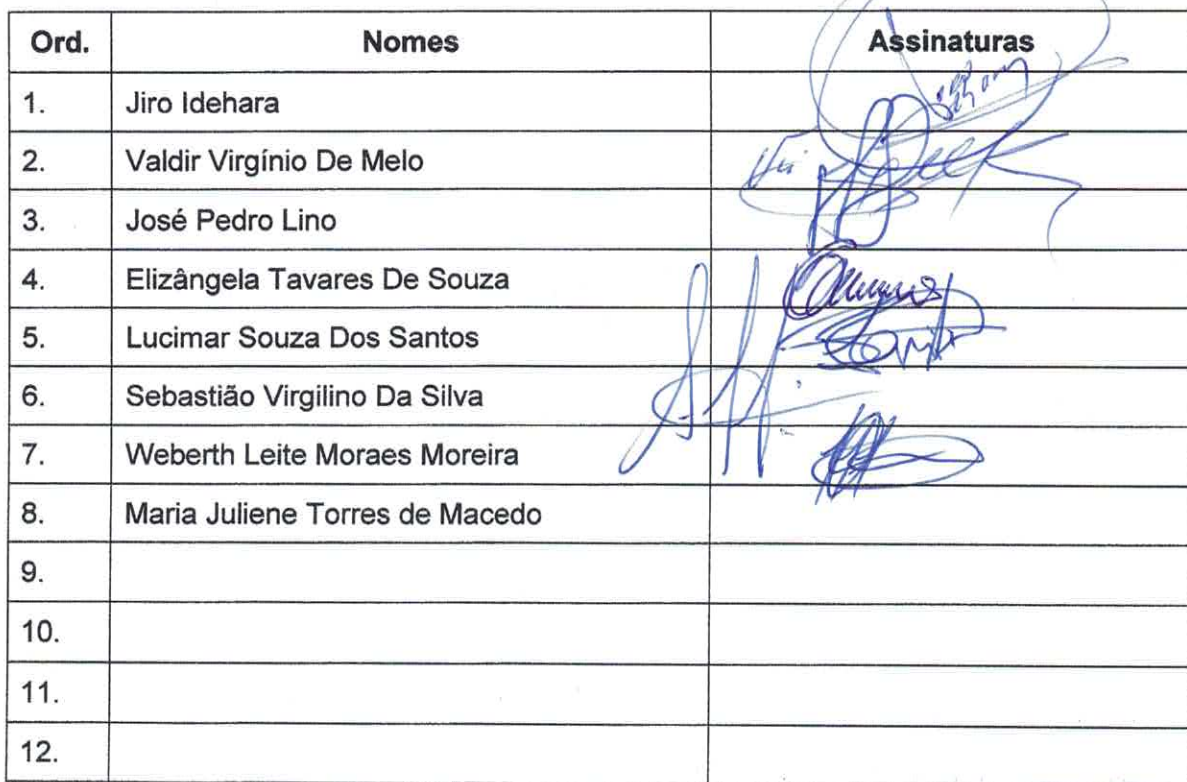 Ord. Nomes Assinaturas
1. Jiro Idehara
2. Valdir Virgínio De Melo
3. José Pedro Lino
4. Elizângela Tavares De Souza
5. Lucimar Souza Dos Santos
6. Sebastião Virgilino Da Silva
7. Weberth Leite Moraes Moreira
8. Maria Juliene Torres de Macedo
9.
10.
11.
12.